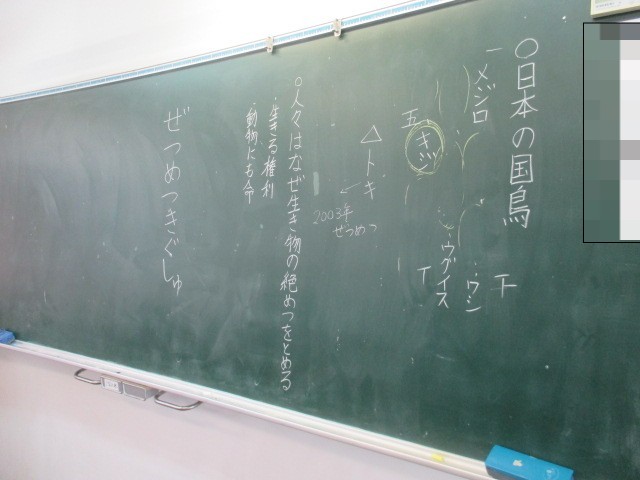 ○日本の国鳥
一メジロ
五
キジ
ウグイス
△トキ
2003年
ぜつめつ
○人々はなぜ生き物の絶めつをとめる
・生きる権利
・動物にも命
ぜつめつきぐしゅ